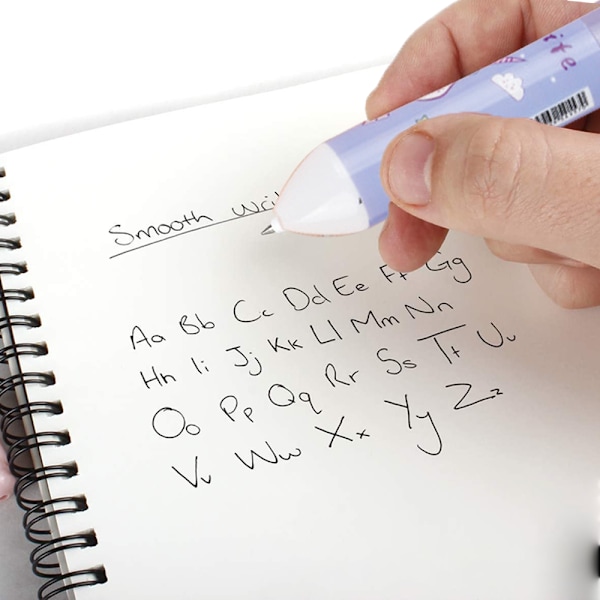 Smooth
Aa Bb Cc Dd Ee Ff Gg
Hh Ii Jj Kk Ll Mm Nn
Oo Pp Qq Rr Ss Tt Uu
Vv Ww Xx Yy Zz